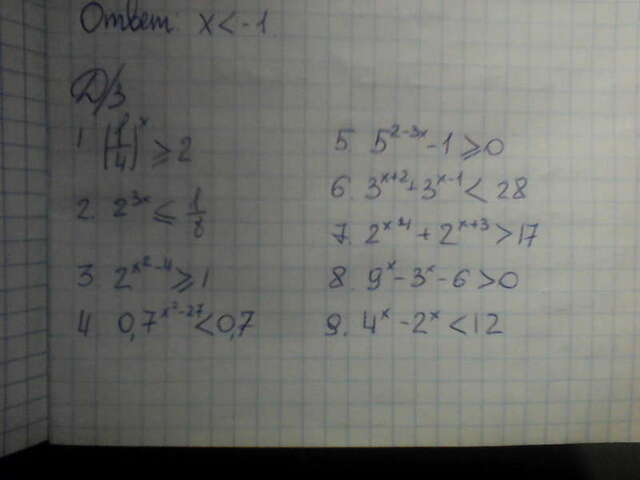 Ответ: x < -1
Д/з
1 (1/4)^x ⩾ 2
2. 2^{3x} ⩽ 1/8
3 2^{x²-4} ⩾ 1
4 0,7^{x²-27} < 0,7
5 5^{2-3x} - 1 ⩾ 0
6. 3^{x+2} + 3^{x-1} < 28
7. 2^{x-1} + 2^{x+3} > 17
8. 9^x - 3^x - 6 > 0
9. 4^x - 2^x < 12